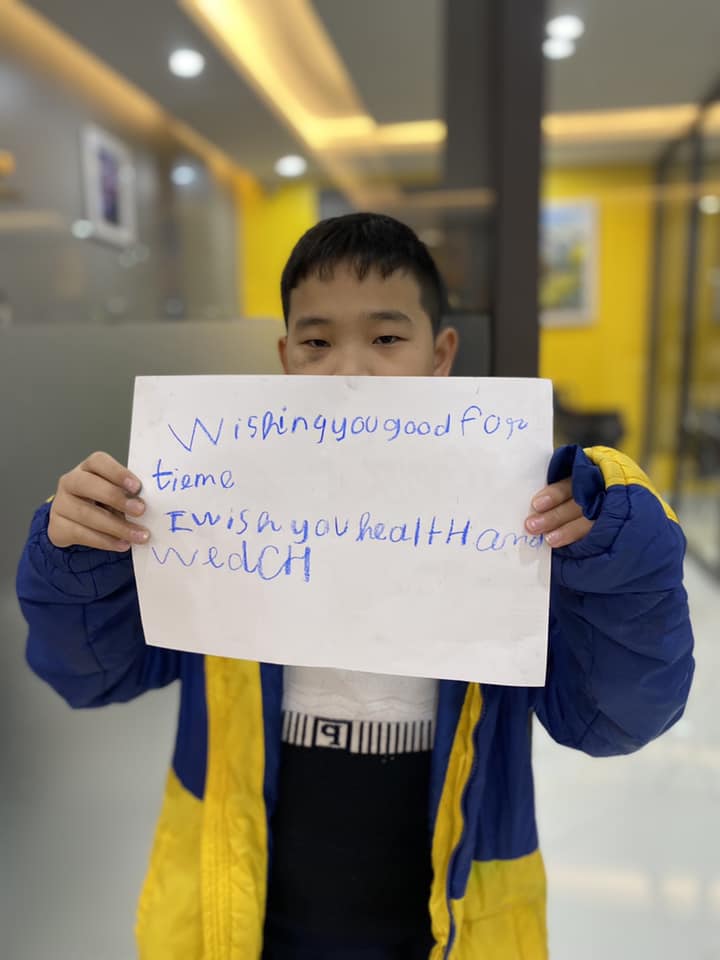 Wishing you good for
tieme
I wish you healtH and
wedCH
P